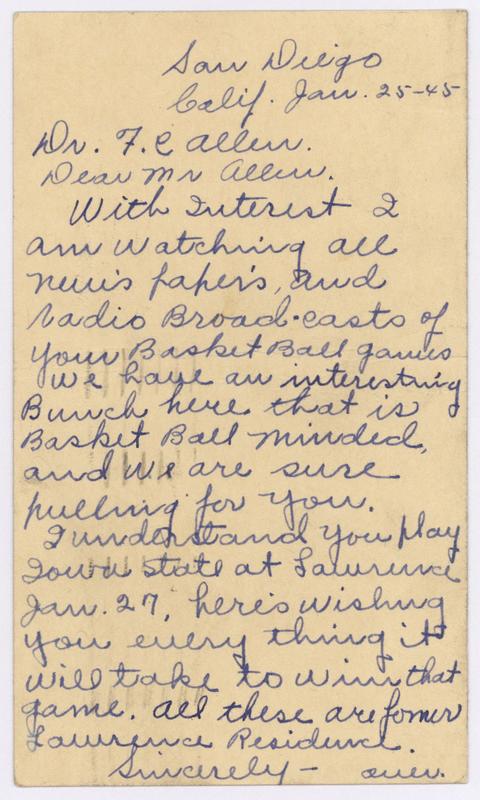 San Diego
Calif. Jan. 25-45
Dr. F. C Allen.
Dear Mr Allen.
With Interest I
am watching all
news paper's, and
radio Broad-casts of
your Basket Ball games
we have an interesting
Bunch here that is
Basket Ball minded,
and we are sure
pulling for you.
I understand you play
Iowa state at Lawrence
Jan. 27, here's wishing
you every thing it
will take to win that
game. all these are fomer
Lawrence Residence.
Sincerely - over.